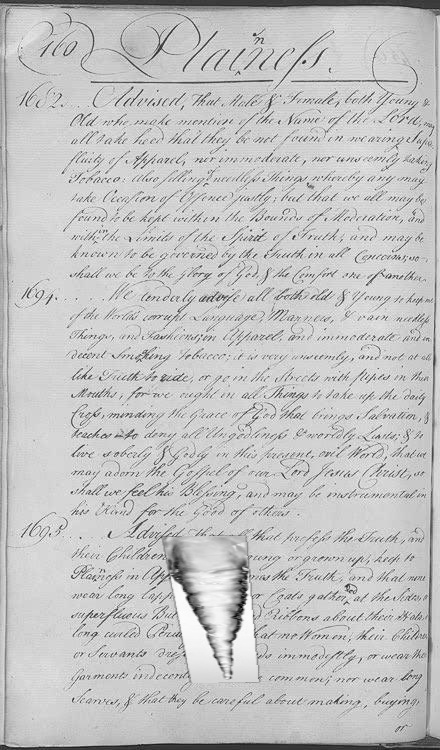 160
Plainness.
1682... Advised, That Male & Female, both Young &
Old who make mention of the Name of the Lord, may
all take heed that they be not found in wearing Supe
fluity of Apparel, nor immoderate, nor unseemly taking
Tobacco: Also selling needless Things whereby any may
take Occasion of Offence justly; but that we all may be
found to be kept within the Bounds of Moderation, and
within the Limits of the Spirit of Truth; and may be
known to be governed by the Truth in all Concerns, so
shall we be to the Glory of God, & the Comfort one of another.
1694..... We tenderly advise all both old & Young to keep
of the World's corrupt Language, Manners, & vain needless
Things, and Fashions, in Apparel, and immoderate and in
decent Smoking Tobacco; it is very unseemly, and not at all
like Truth to ride, or go in the Streets with pipes in their
Mouths, for we ought in all Things to take up the daily
Cross, minding the Grace of God that brings Salvation, &
teaches to deny all Ungodliness & worldly Lusts, & to
live soberly & Godly in this present, evil World, that we
may adorn the Gospel of our Lord Jesus Christ, so
shall we feel his Blessing, and may be instrumental in
his Hand for the Good of others.
1695... Advised that all that profess the Truth, and
their Children young or grown up, keep to
Plainness in App the Truth, and that none
wear long lapp or Coats gather'd at the Sides, or
superfluous But Ribbons about their Hats, or
long curled that no Women, their Children
or Servants dress immodestly, or wear their
Garments indecently common; nor wear long
Scarves, & that they be careful about making, buying,
or